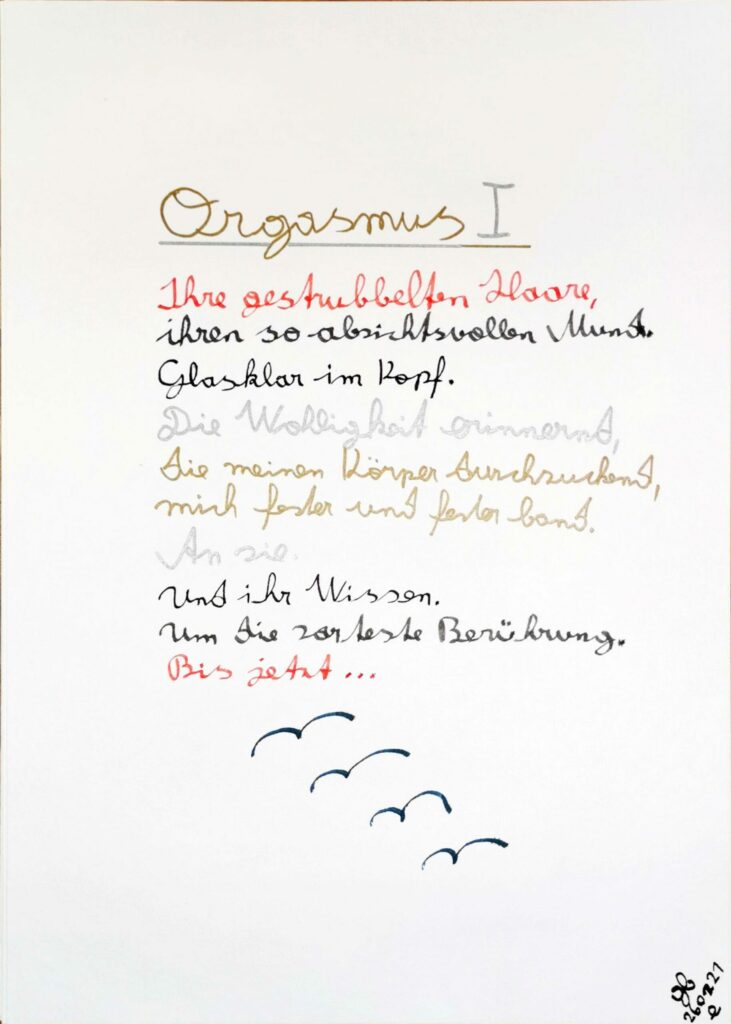 Orgasmus I
Ihre gestrubbelten Haare,
ihren so absichtsvollen Mund.
Glasklar im Kopf.
Die Wohligkeit erinnernd,
die meinen Körper durchzuckend,
mich fester und fester band.
An sie.
Und ihr Wissen.
Um die zarteste Berührung.
Bis jetzt...